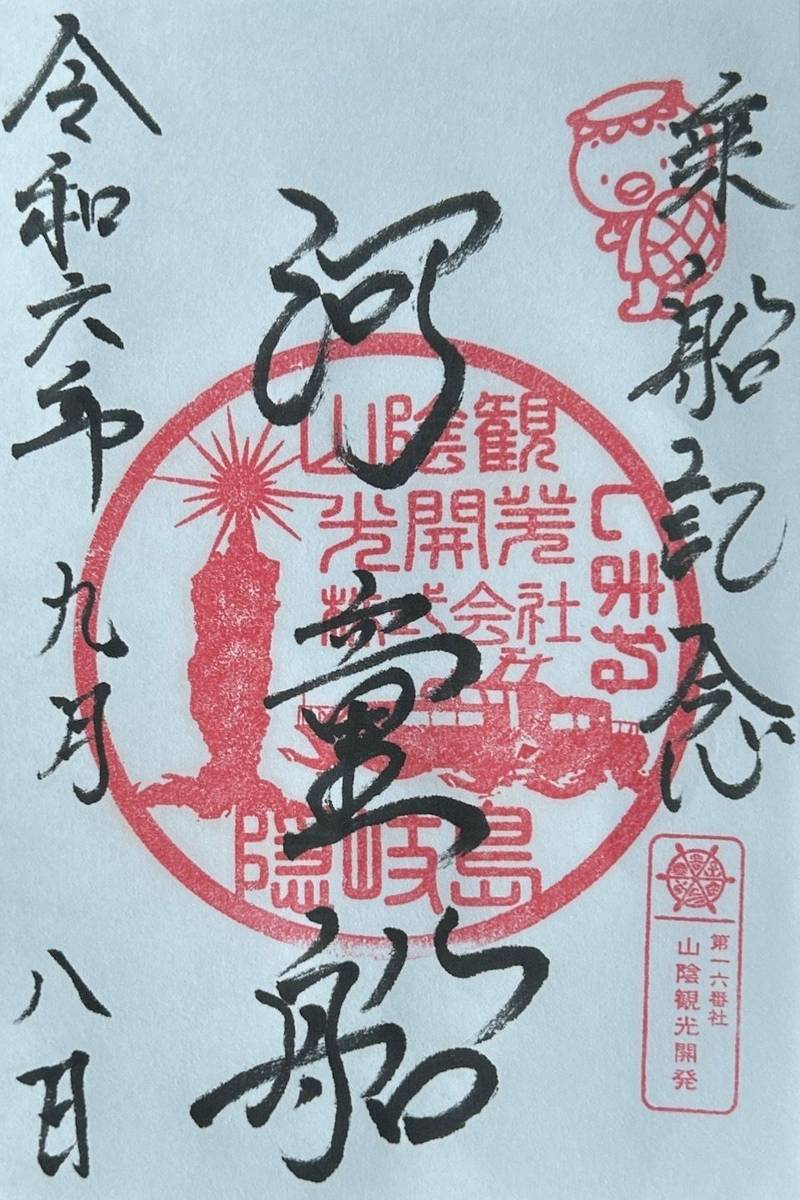 乗船記念
河童船
令和六年 九月 八日
しまね
山陰観
光開発
株式会社
隠岐島
第一六番社
山陰観光開発